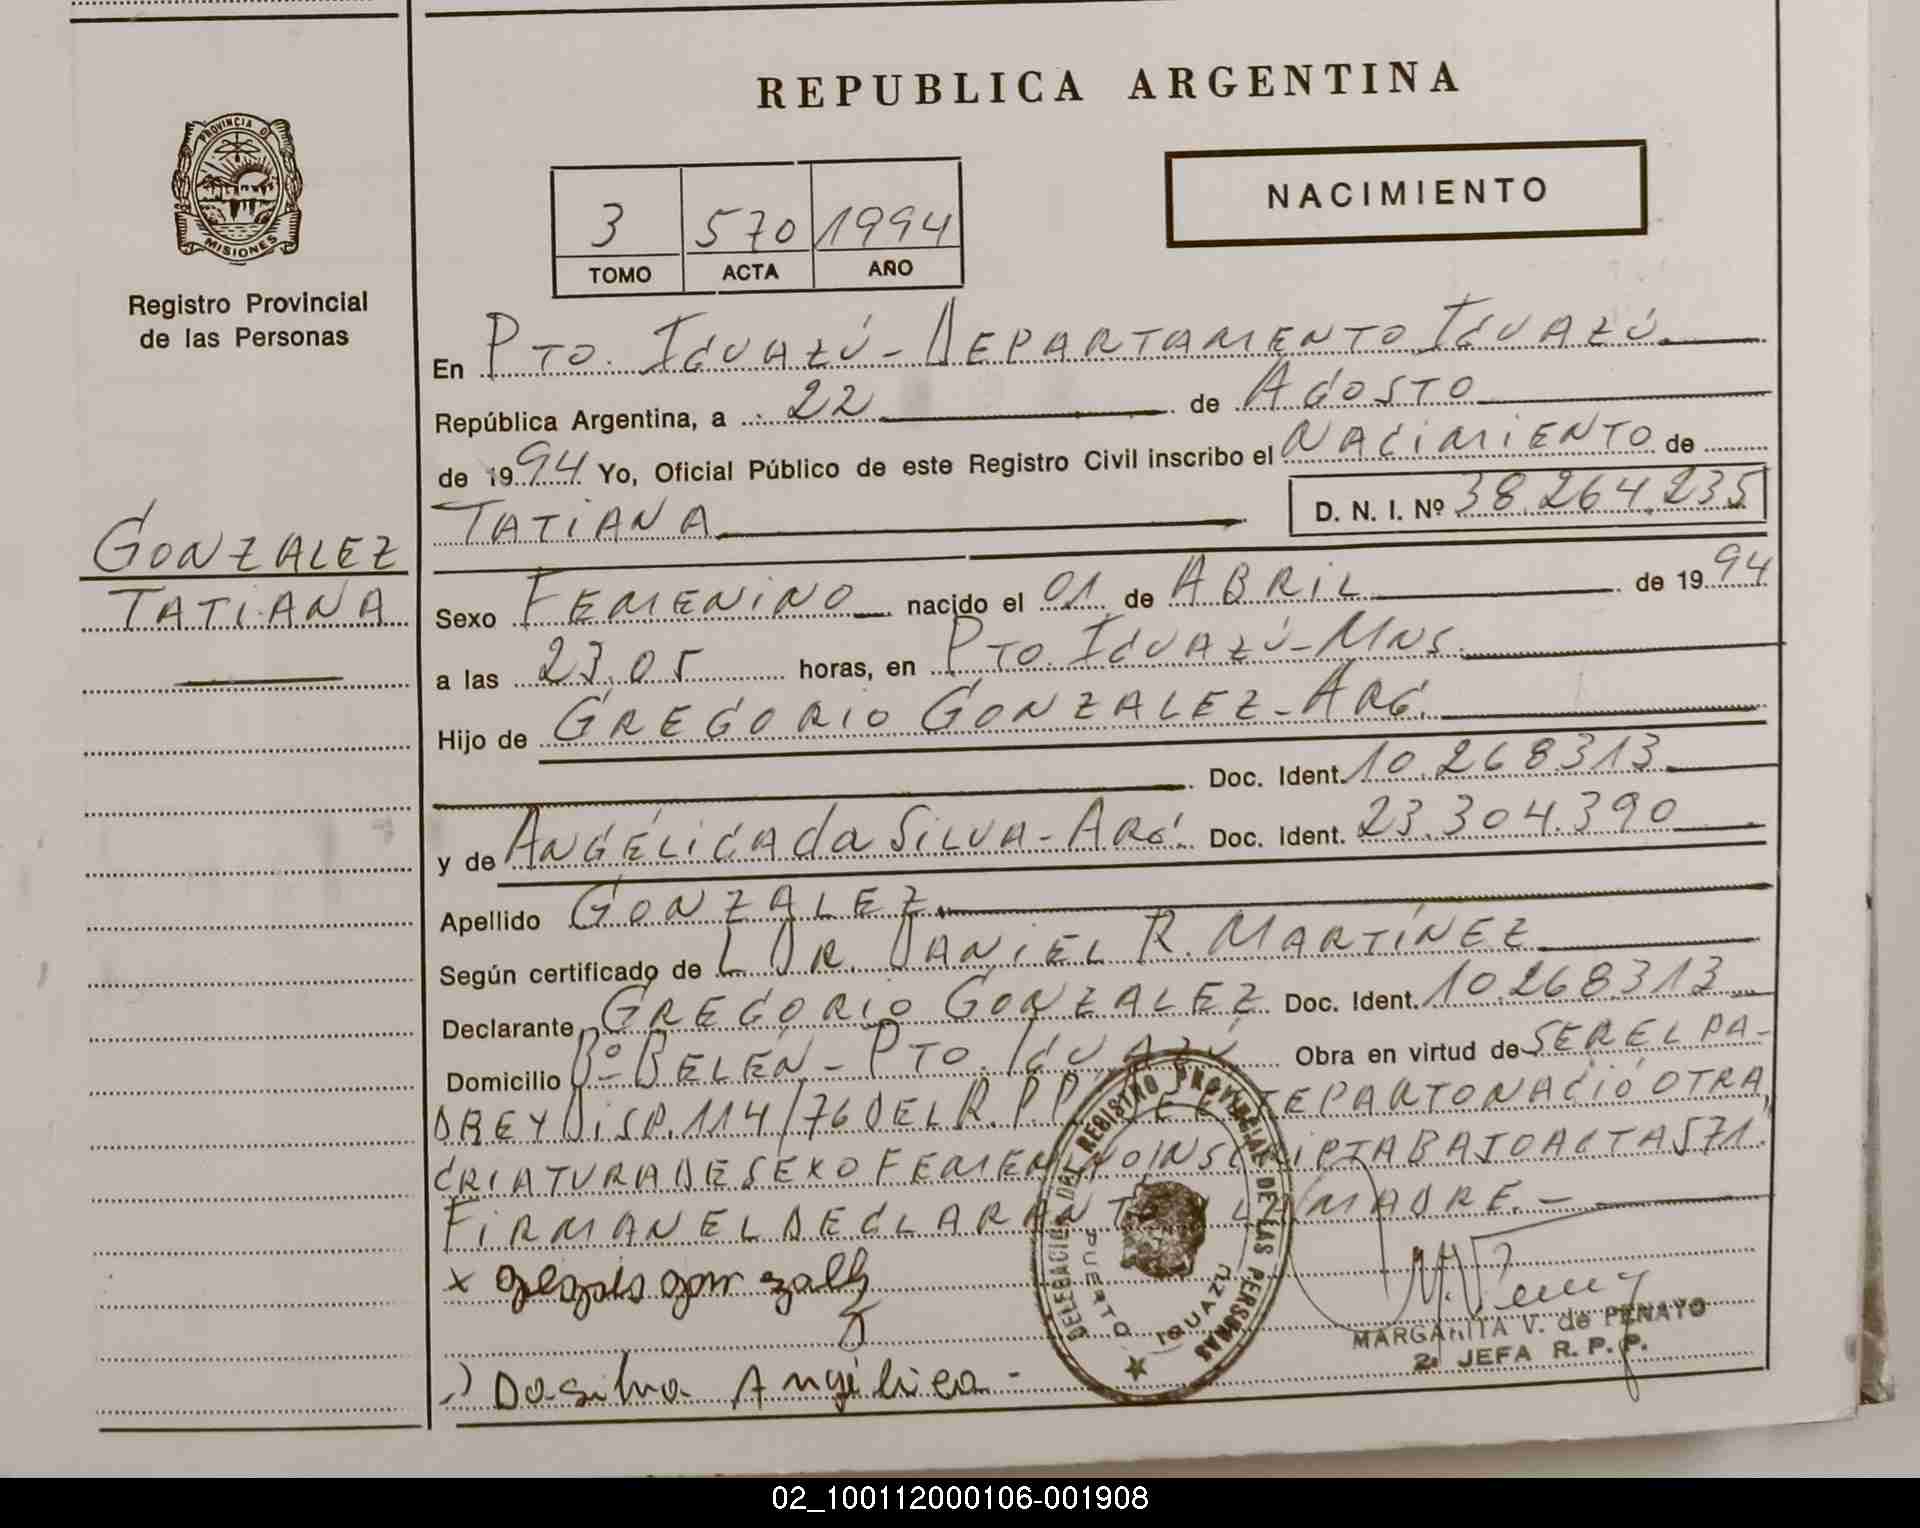 REPUBLICA ARGENTINA
PROVINCIA D
MISIONES
Registro Provincial
de las Personas
NACIMIENTO
3 570 1994
TOMO ACTA AÑO
En Pto. Iguazú - Departamento Iguazú
República Argentina, a 22 de Agosto
de 1994 Yo, Oficial Público de este Registro Civil inscribo el Nacimiento de
Tatiana D. N. I. Nº 38.264.235
Gonzalez
Tatiana
Sexo Femenino nacido el 01 de Abril de 1994
a las 23.05 horas, en Pto. Iguazú - Mns.
Hijo de Gregorio Gonzalez - Arg.
Doc. Ident. 10.268313
y de Angélica da Silva - Arg. Doc. Ident. 23.304.390
Apellido Gonzalez
Según certificado de L Dr. Daniel R. Martínez
Declarante Gregorio Gonzalez Doc. Ident. 10.268.313
Domicilio Bº Belén - Pto. Iguazú Obra en virtud de ser el pa-
dre y Disp. 114/76 del R.P.P. De este parto nació otra
criatura de sexo femenino inscripta bajo acta 571.
Firman el declarante y la madre. -
x gonzalez
Dasilva Angélica -
DELEGACION DEL REGISTRO PROVINCIAL DE LAS PERSONAS
PUERTO IGUAZU
MARGARITA V. de PENAYO
2ª JEFA R. P. P.
02_100112000106-001908